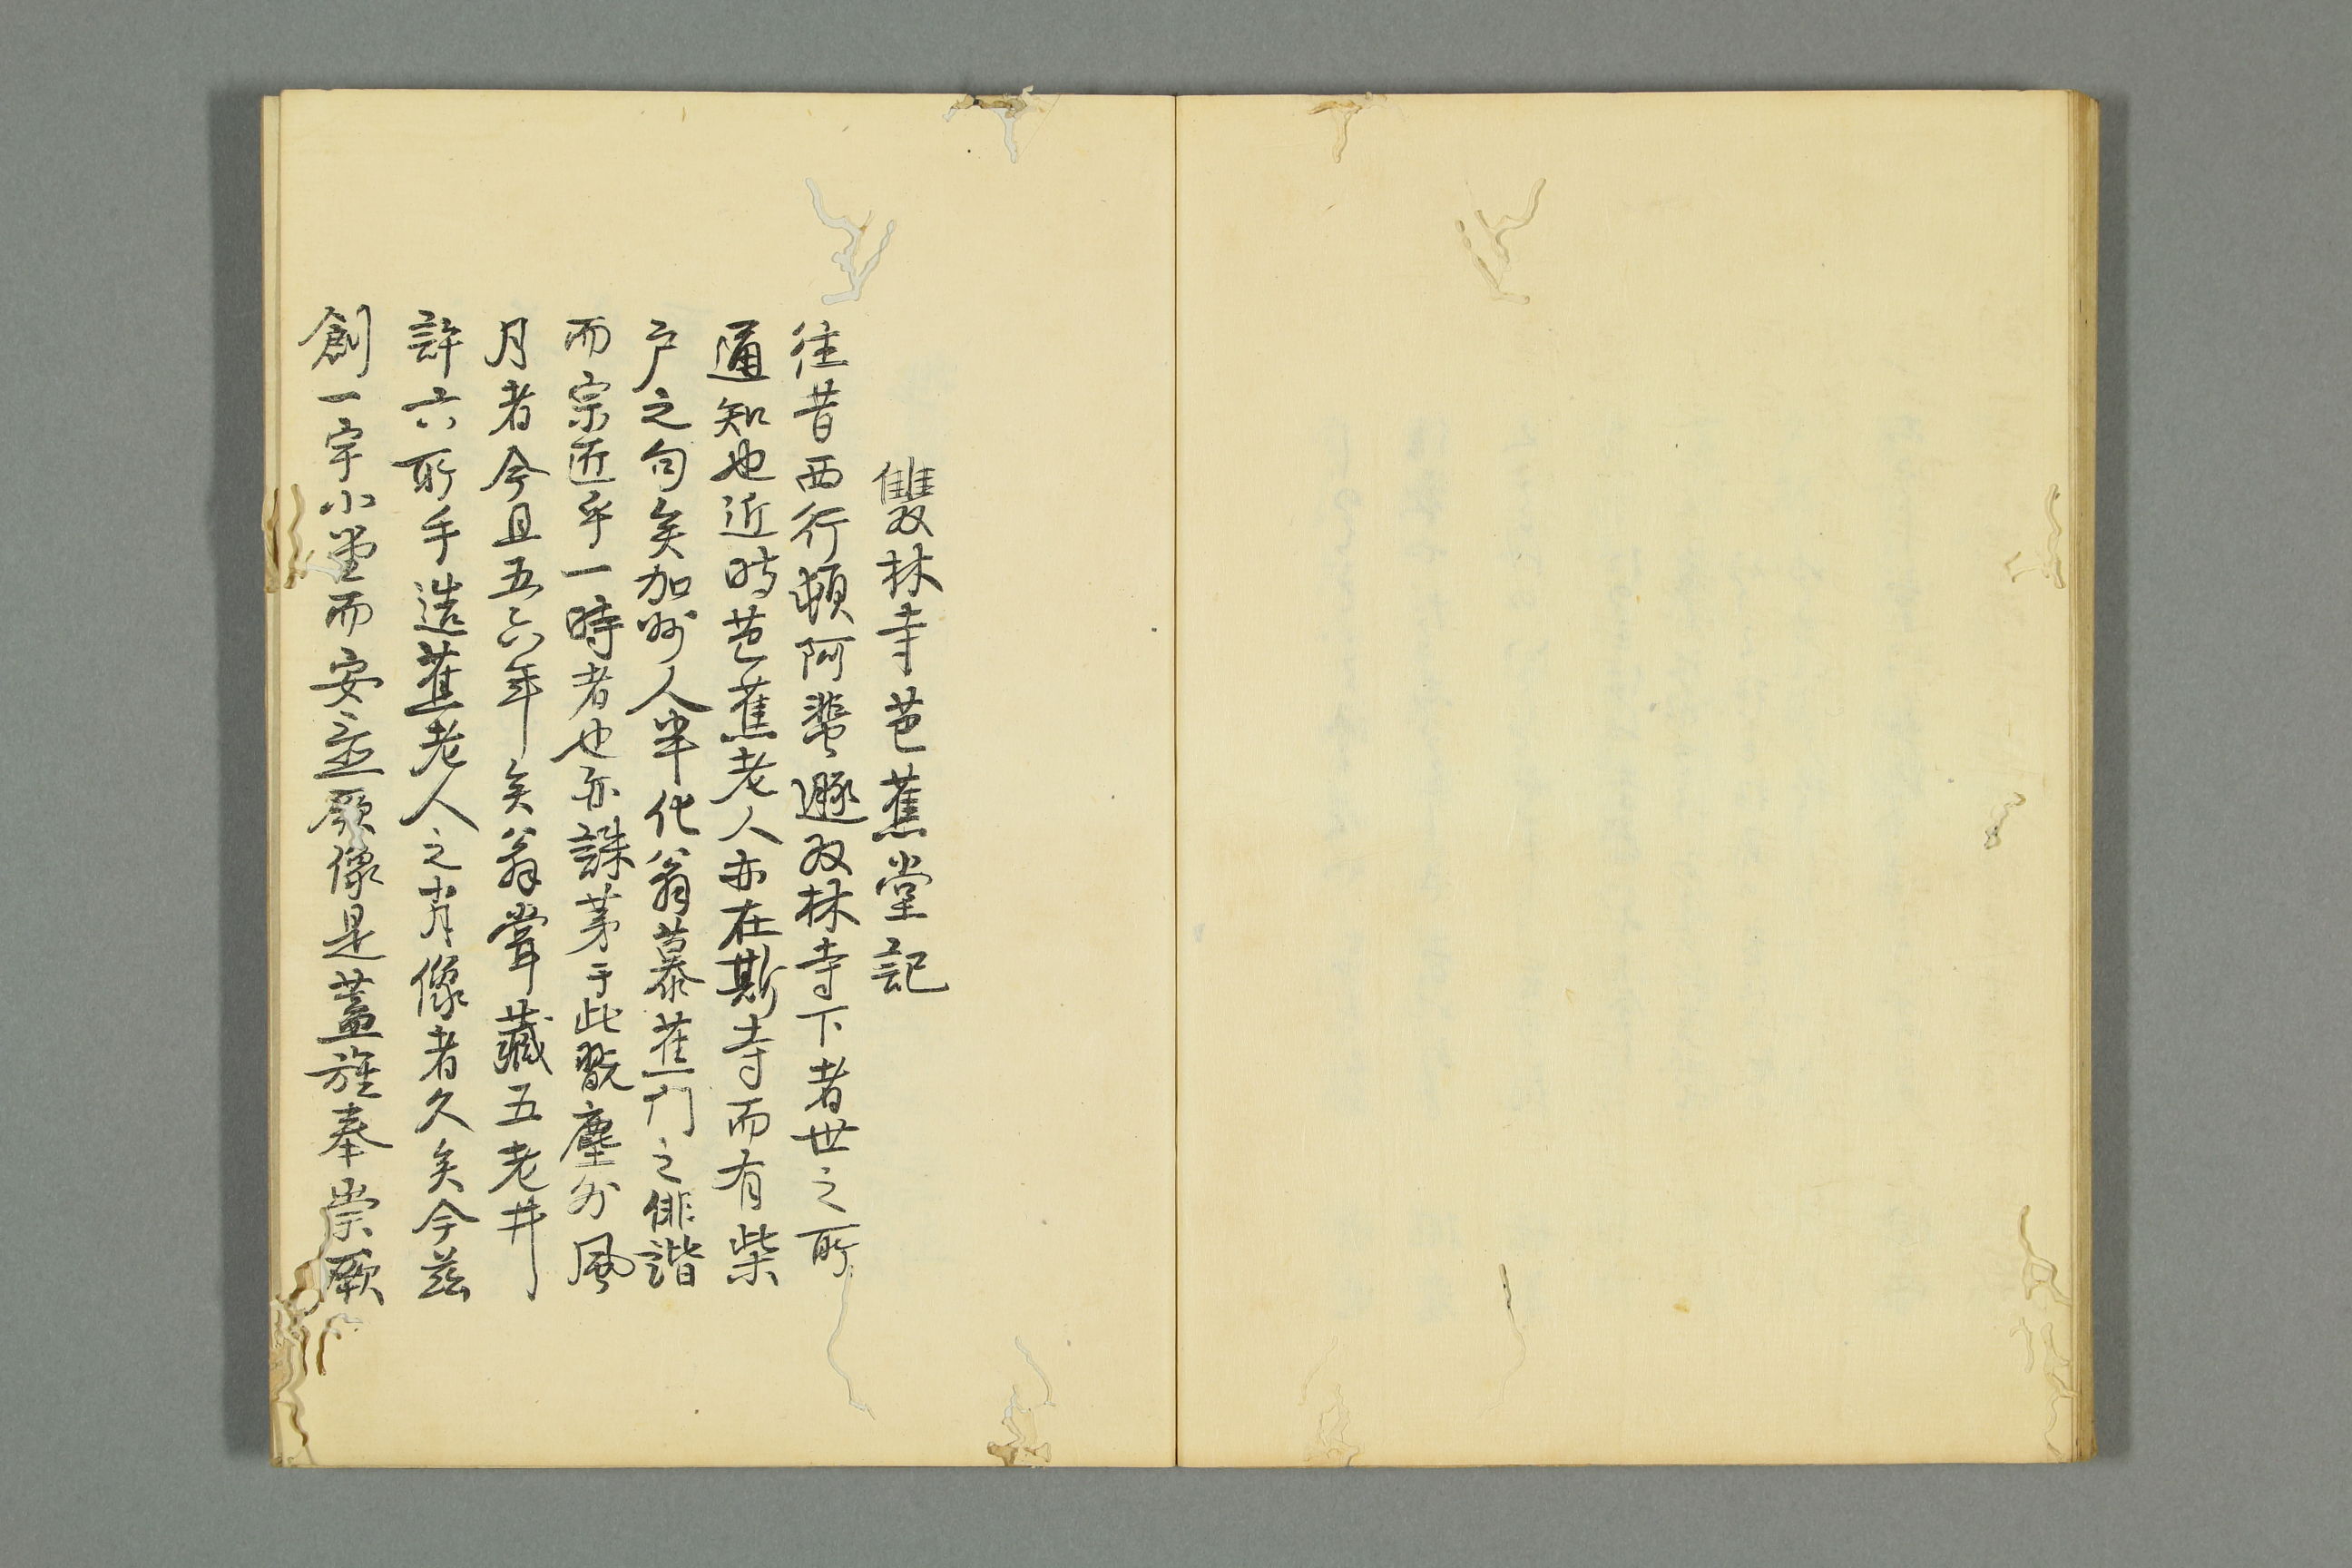 雙林寺芭蕉堂記
往昔西行頓阿蜚遯双林寺下者世之所
通知也近時芭蕉老人亦在斯寺而有柴
户之句矣加州人半化翁慕蕉门之俳諧
而宗匠乎一時者也亦誅茅于此翫塵外風
月者今且五六年矣翁嘗藏五老井
許六所手造蕉老人之肖像者久矣今茲
創一宇小堂而安立厥像是蓋旌奉崇厥